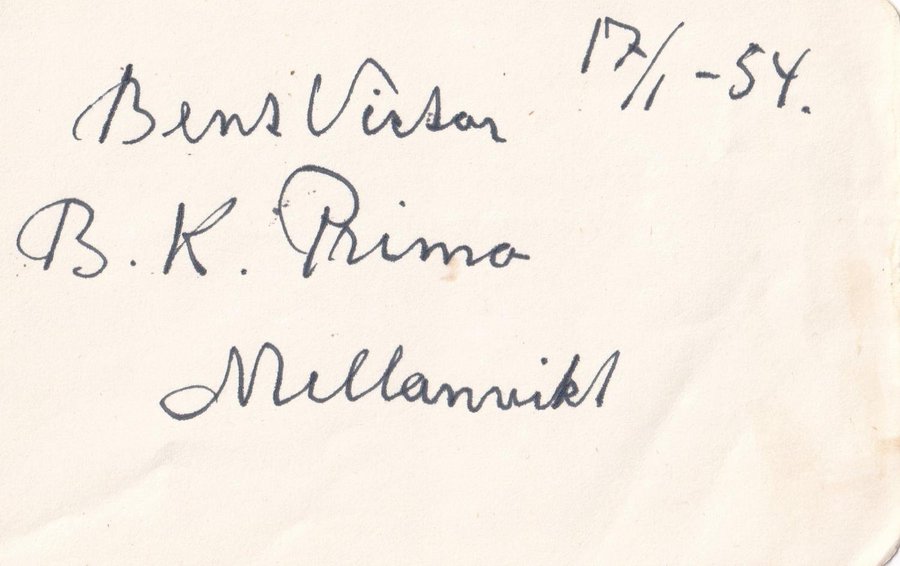 Bent Victor 17/1-54.
B. K. Primo
Mellanvikt